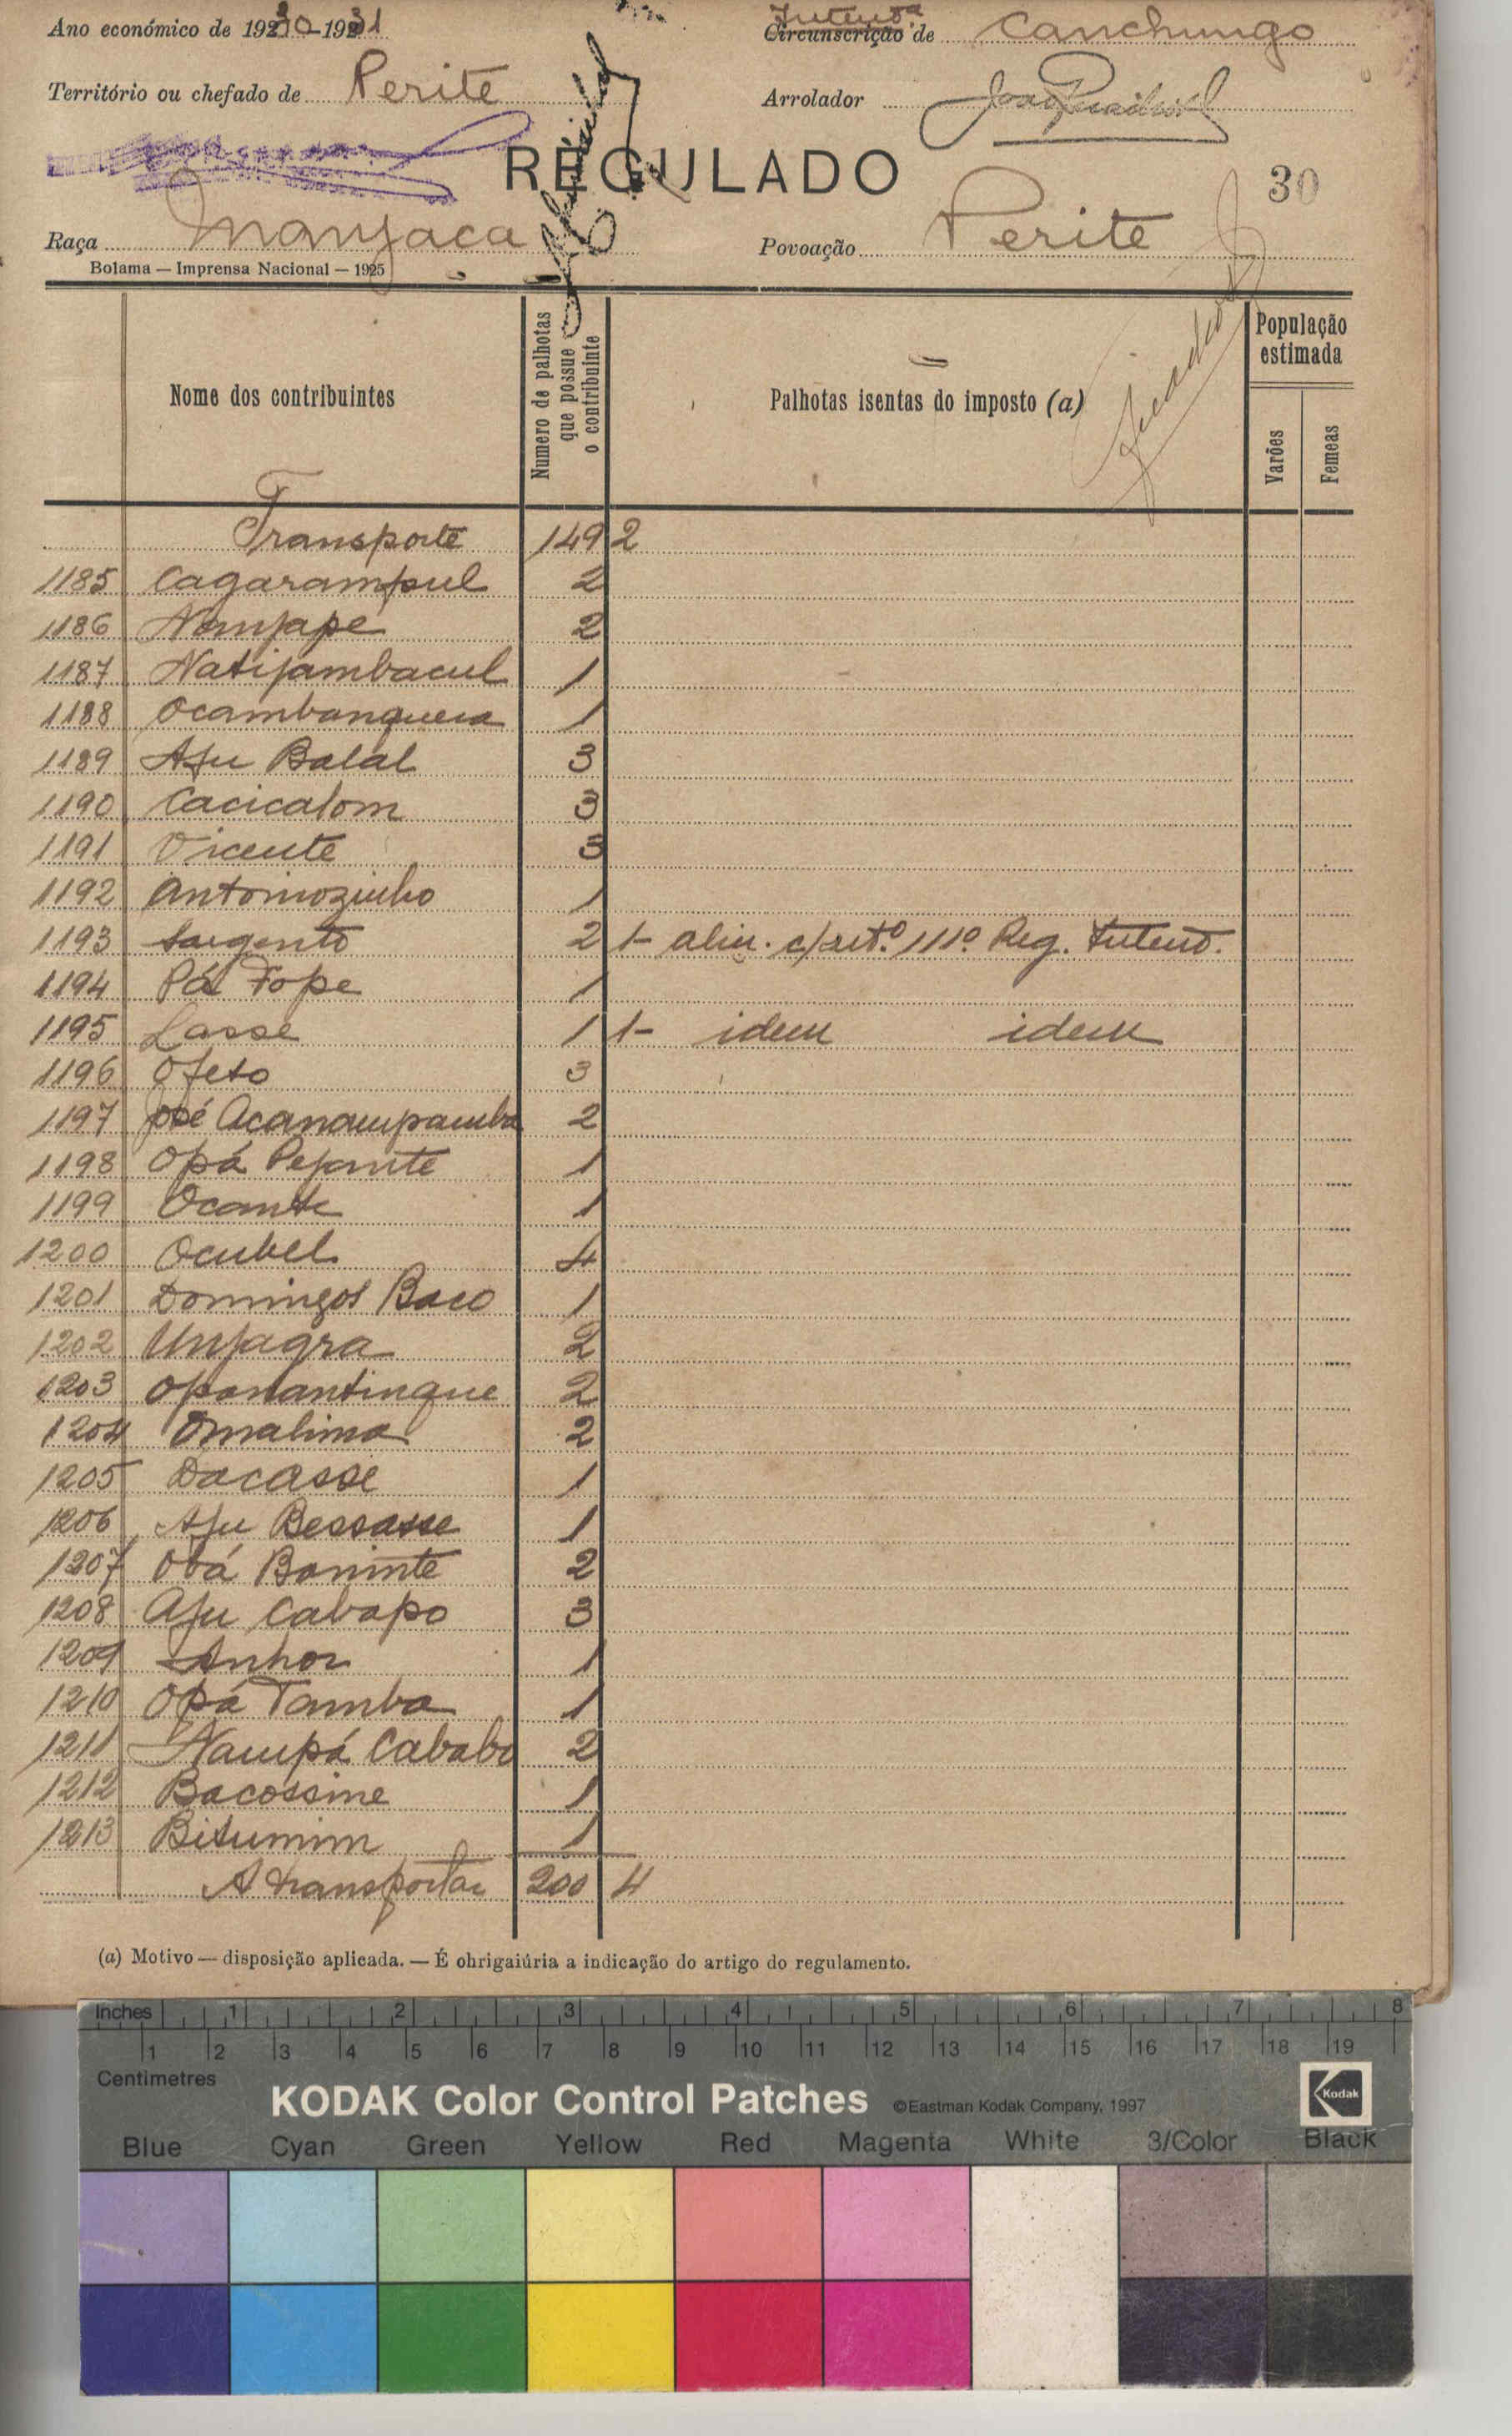 Ano económico de 1930-1931
Intend.ª
Circunscrição de Canchungo
Território ou chefado de Perite
Arrolador
REGULADO
30
Raça Manjaca
Povoação Perite
Bolama — Imprensa Nacional — 1925
Nome dos contribuintes
Numero de palhotas que possue o contribuinte
Palhotas isentas do imposto (a)
População estimada
Varões
Femeas
Transporte 149 2
1185 Cagarampul 2
1186 Nanjape 2
1187 Natijambacul 1
1188 Ocambanquea 1
1189 Aju Balal 3
1190 Cacicalom 3
1191 Vicente 3
1192 Antoniozinho 1
1193 Sargento 2 1- alin. c/ art.º 111º Reg. Intend.
1194 Pá Fope 1
1195 Lasse 1 1- idem idem
1196 Ofeto 3
1197 José Acanampamba 2
1198 Opá Pejante 1
1199 Ocante 1
1200 Ocubel 4
1201 Domingos Baco 1
1202 Unjagra 2
1203 Opanantinque 2
1204 Omalima 2
1205 Dacasse 1
1206 Aju Bessasse 1
1207 Obá Boninte 2
1208 Aju Cabopo 3
1209 Anhor 1
1210 Opá Tamba 1
1211 Nampá Cababo 2
1212 Bacossine 1
1213 Bitumim 1
A transportar 200 4
(a) Motivo — disposição aplicada. — É obrigaiúria a indicação do artigo do regulamento.
Inches 1 2 3 4 5 6 7 8
1 2 3 4 5 6 7 8 9 10 11 12 13 14 15 16 17 18 19
Centimetres
KODAK Color Control Patches ©Eastman Kodak Company, 1997 Kodak
Blue Cyan Green Yellow Red Magenta White 3/Color Black